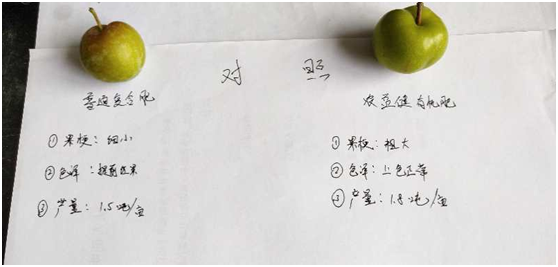 对 照
普通复合肥
① 果梗：细小
② 色泽：
③ 产量：1.5吨/亩
农益健有机肥
① 果梗：粗大
② 色泽：上色正常
③ 产量：1.8吨/亩